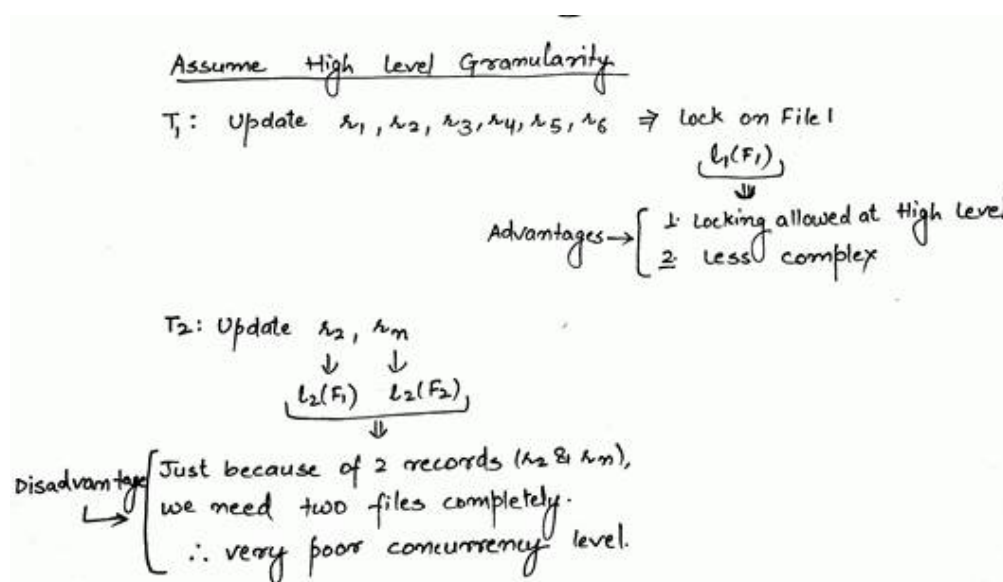 Assume High Level Granularity
T₁: Update r₁, r₂, r₃, r₄, r₅, r₆ ⇒ Lock on File 1
l₁(F₁)
⇓
Advantages → 1. Locking allowed at High Level
2. Less complex
T₂: Update r₂, rₙ
⇓ ⇓
l₂(F₁) l₂(F₂)
⇓
Disadvantage Just because of 2 records (r₂ & rₙ),
↳ we need two files completely.
∴ very poor concurrency level.